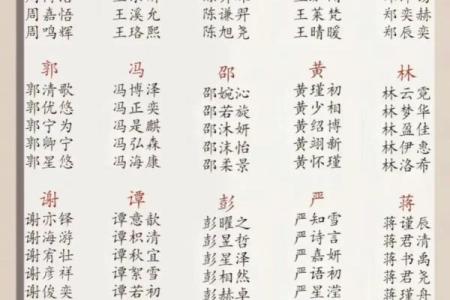 周嘉悟 王溪允 陈谦羿 王莱梵 郑奕辰
周鸣辉 王珞熙 陈旭尧 王晴暖 郑奕辰
郭 冯 邵 黄 林
郭清歌 冯博泽 邵婉沁 黄瑾初 林云霓
郭优悠 冯正奕 邵若旋 黄少相 林梦华
郭宁为 冯是麒 邵沫妍 黄绍博 林盈佳
郭卿宁 冯弘森 邵沐怡 黄翊新 林伊惠
郭星悠 冯海康 邵柔景 黄怀瑾 林洛希
谢 谭 彭 严 蒋
谢亦铎 谭意歆 彭曜之 严知雪 蒋谨辰
谢海游 谭枳清 彭昱哲 严诗言 蒋君清
谢宥壮 谭秋宜 彭星泽 严嘉妍 蒋书禹
谢彦祥 谭絮雪 彭相然 严语初 蒋君尧
谢俊奕 彭赫卓 严星滢 蒋谨舟